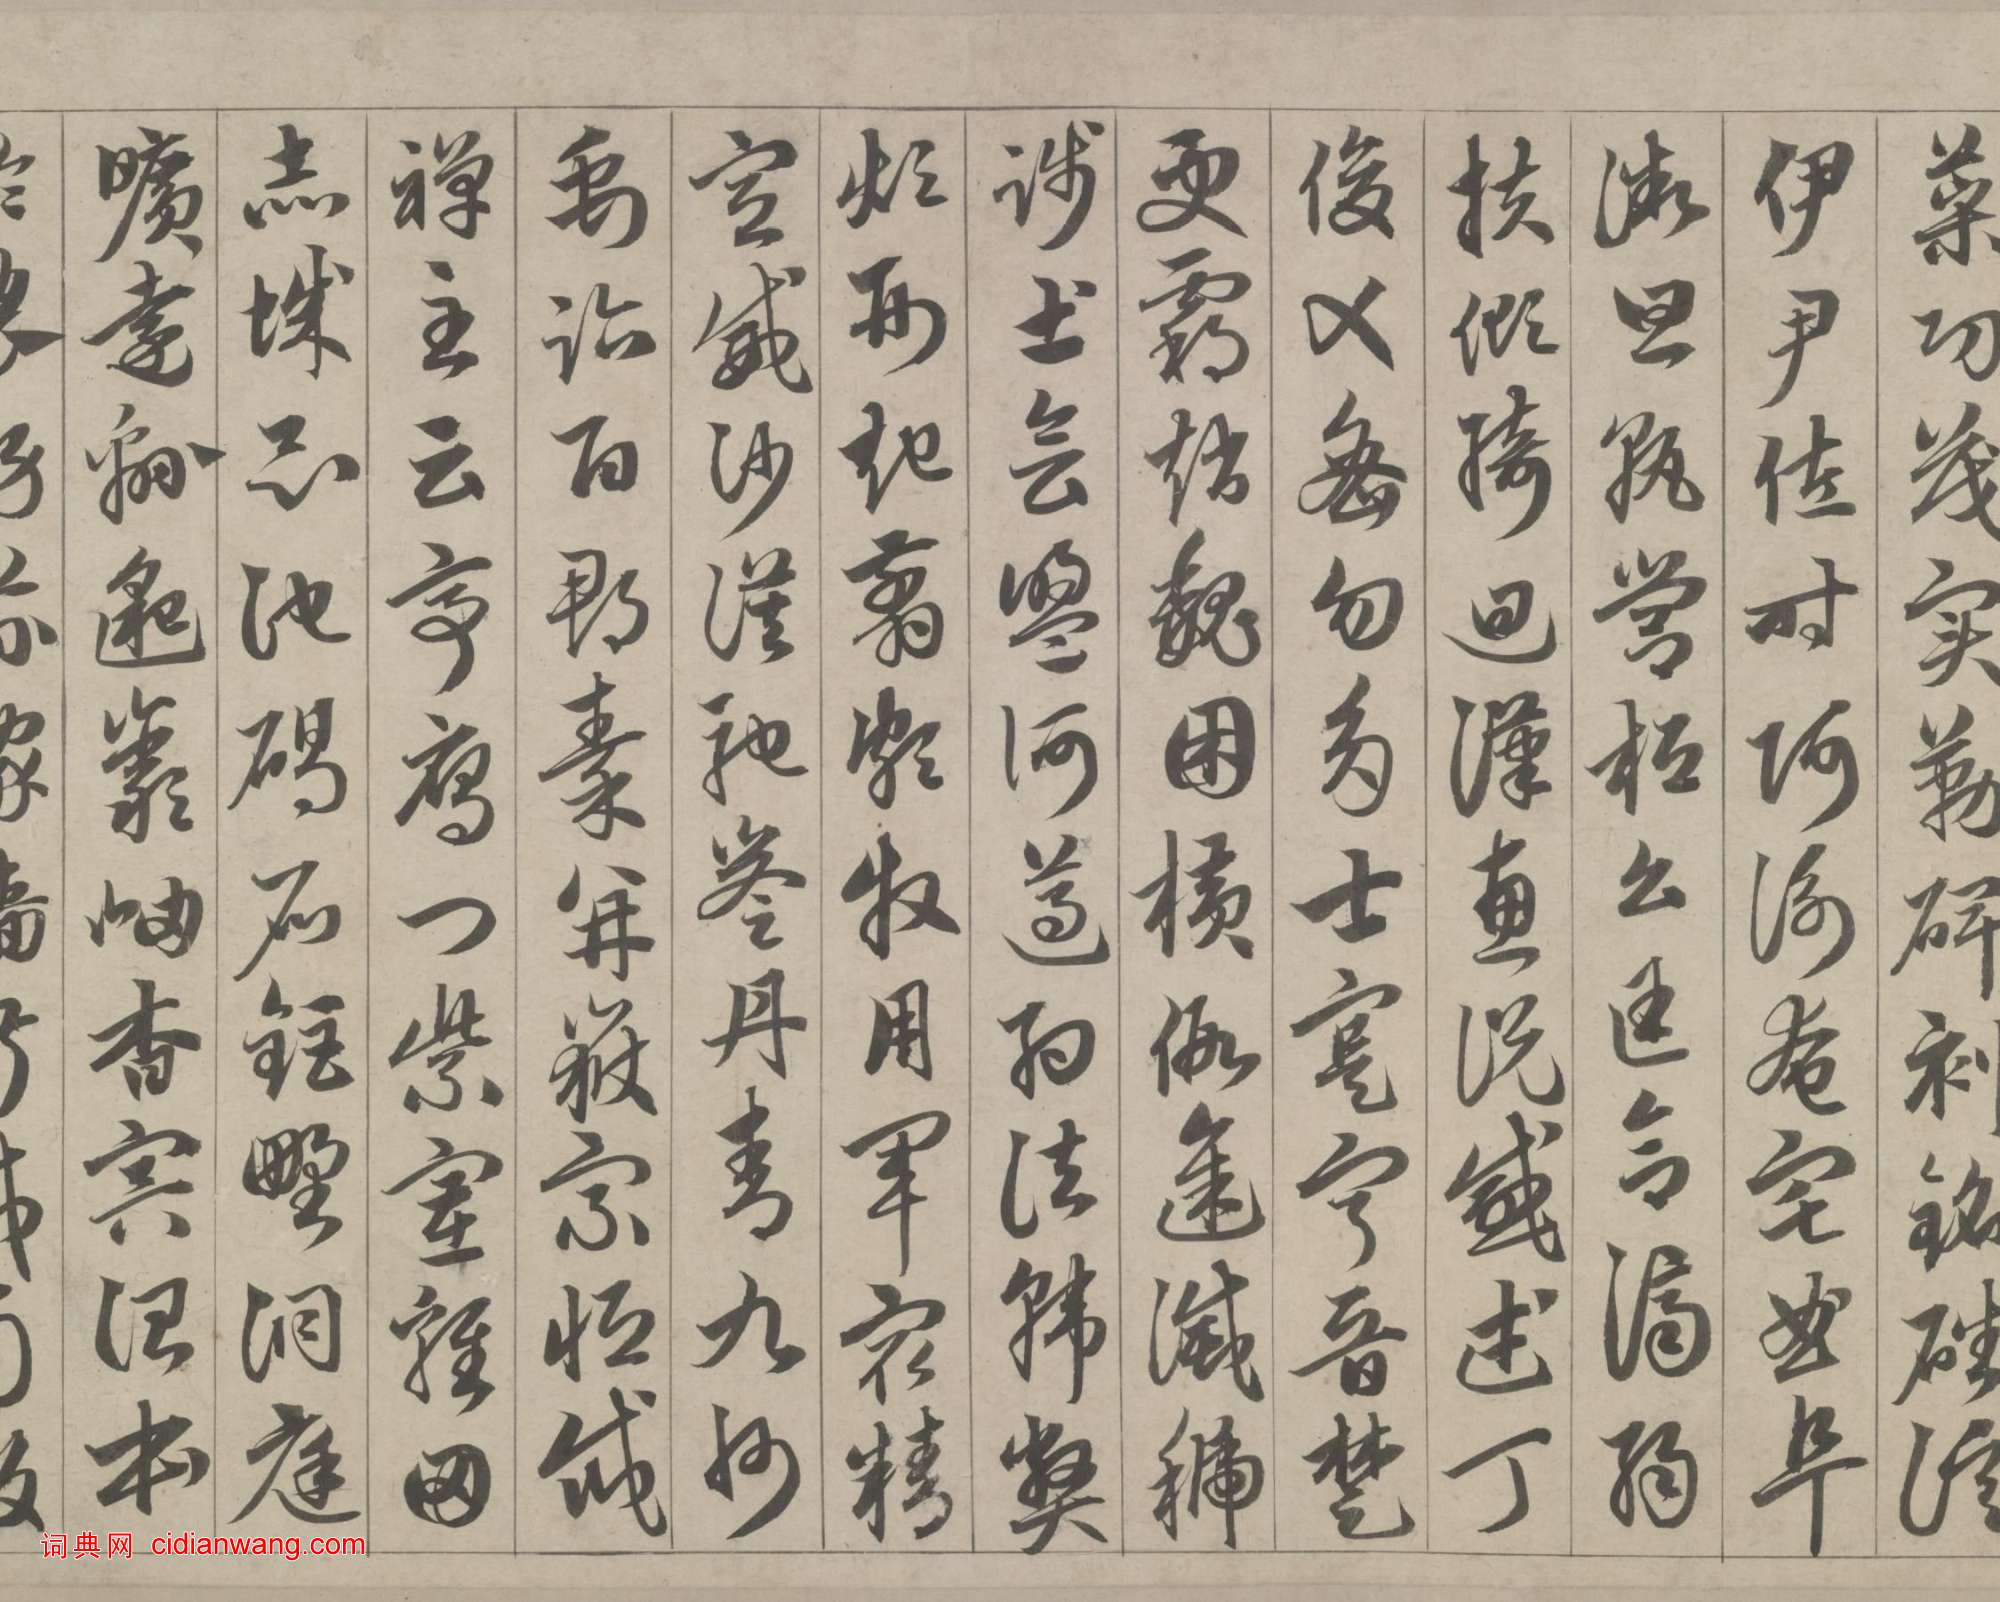 策功茂實勒碑刻銘磻溪
伊尹佐時阿衡奄宅曲阜
微旦孰營桓公匡合濟弱
扶傾綺迴漢惠說感武丁
俊乂密勿多士寔寧晉楚
更霸趙魏困橫假途滅虢
踐土會盟何遵約法韓弊
煩刑起翦頗牧用軍最精
宣威沙漠馳譽丹青九州
禹跡百郡秦并嶽宗恒岱
禪主云亭雁門紫塞雞田
赤城昆池碣石鉅野洞庭
曠遠綿邈巖岫杳冥治本
於農務茲稼穡俶載南畝
词典网 cidianwang.com